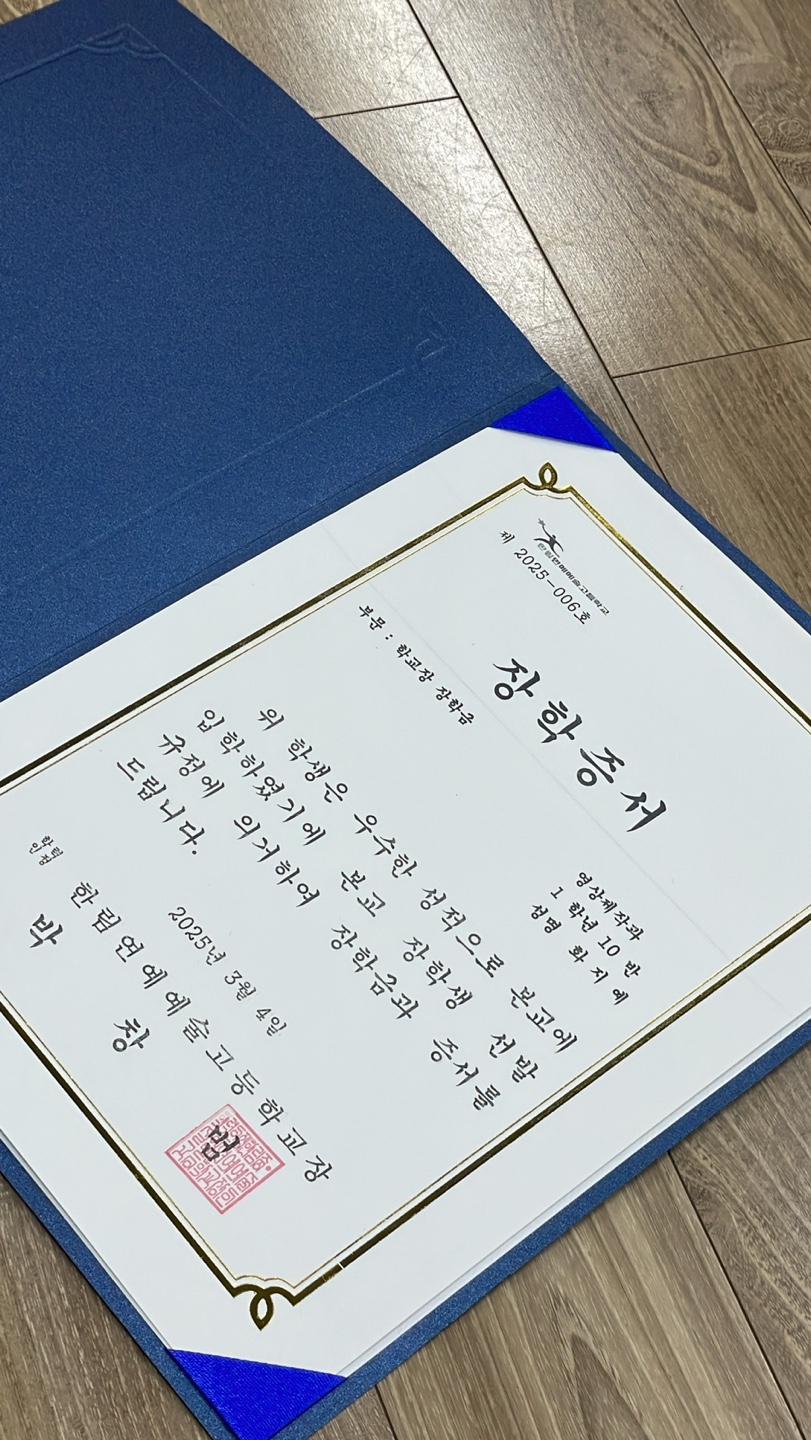 한림연예예술고등학교
제 2025-006호
장학증서
부문 : 학교장 장학금
영상제작과
1 학년 10 반
성명 화지예
위 학생은 우수한 성적으로 본교에
입학하였기에 본교 장학생 선발
규정에 의거하여 장학금과 증서를
드립니다.
2025년 3월 4일
학력
인정
한림연예예술고등학교장
박 창 범